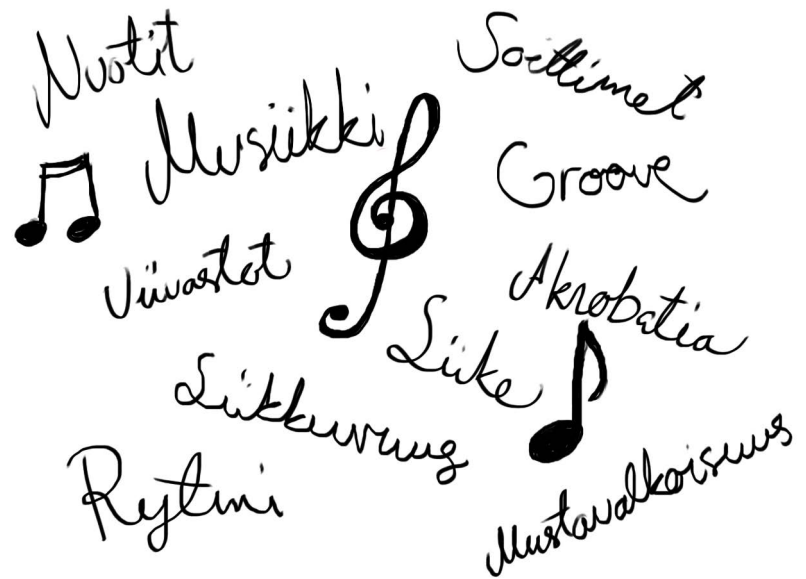 Nuotit
Soittimet
Musiikki
Groove
Viivastot
Akrobatia
Liike
Liikkuvuus
Rytmi
Mustavalkoisuus